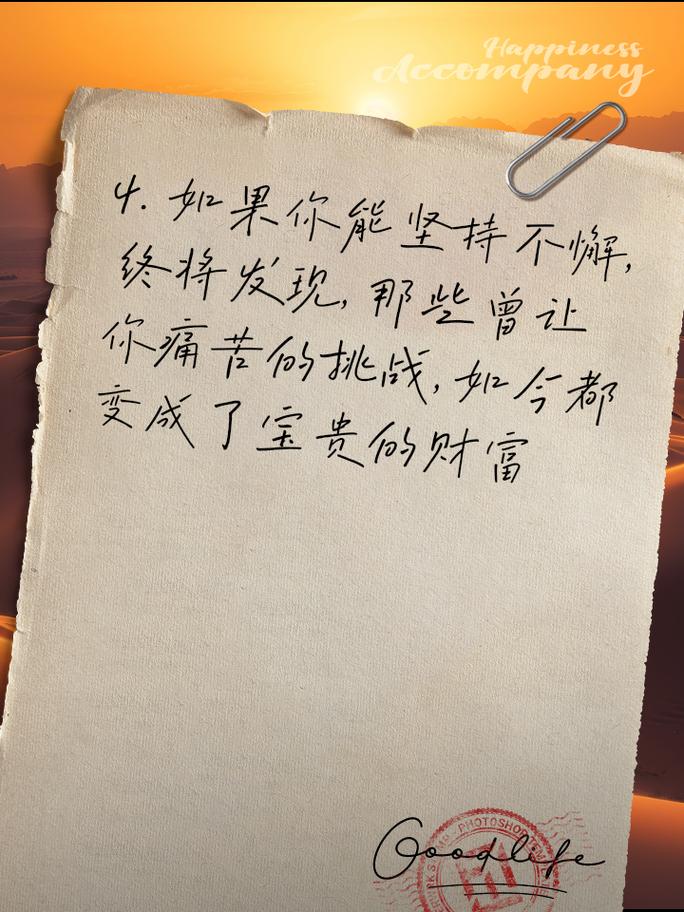 Happiness
Accompany
4. 如果你能坚持不懈,
终将发现, 那些曾让
你痛苦的挑战, 如今都
变成了宝贵的财富
Goodlife
PHOTOSHOP